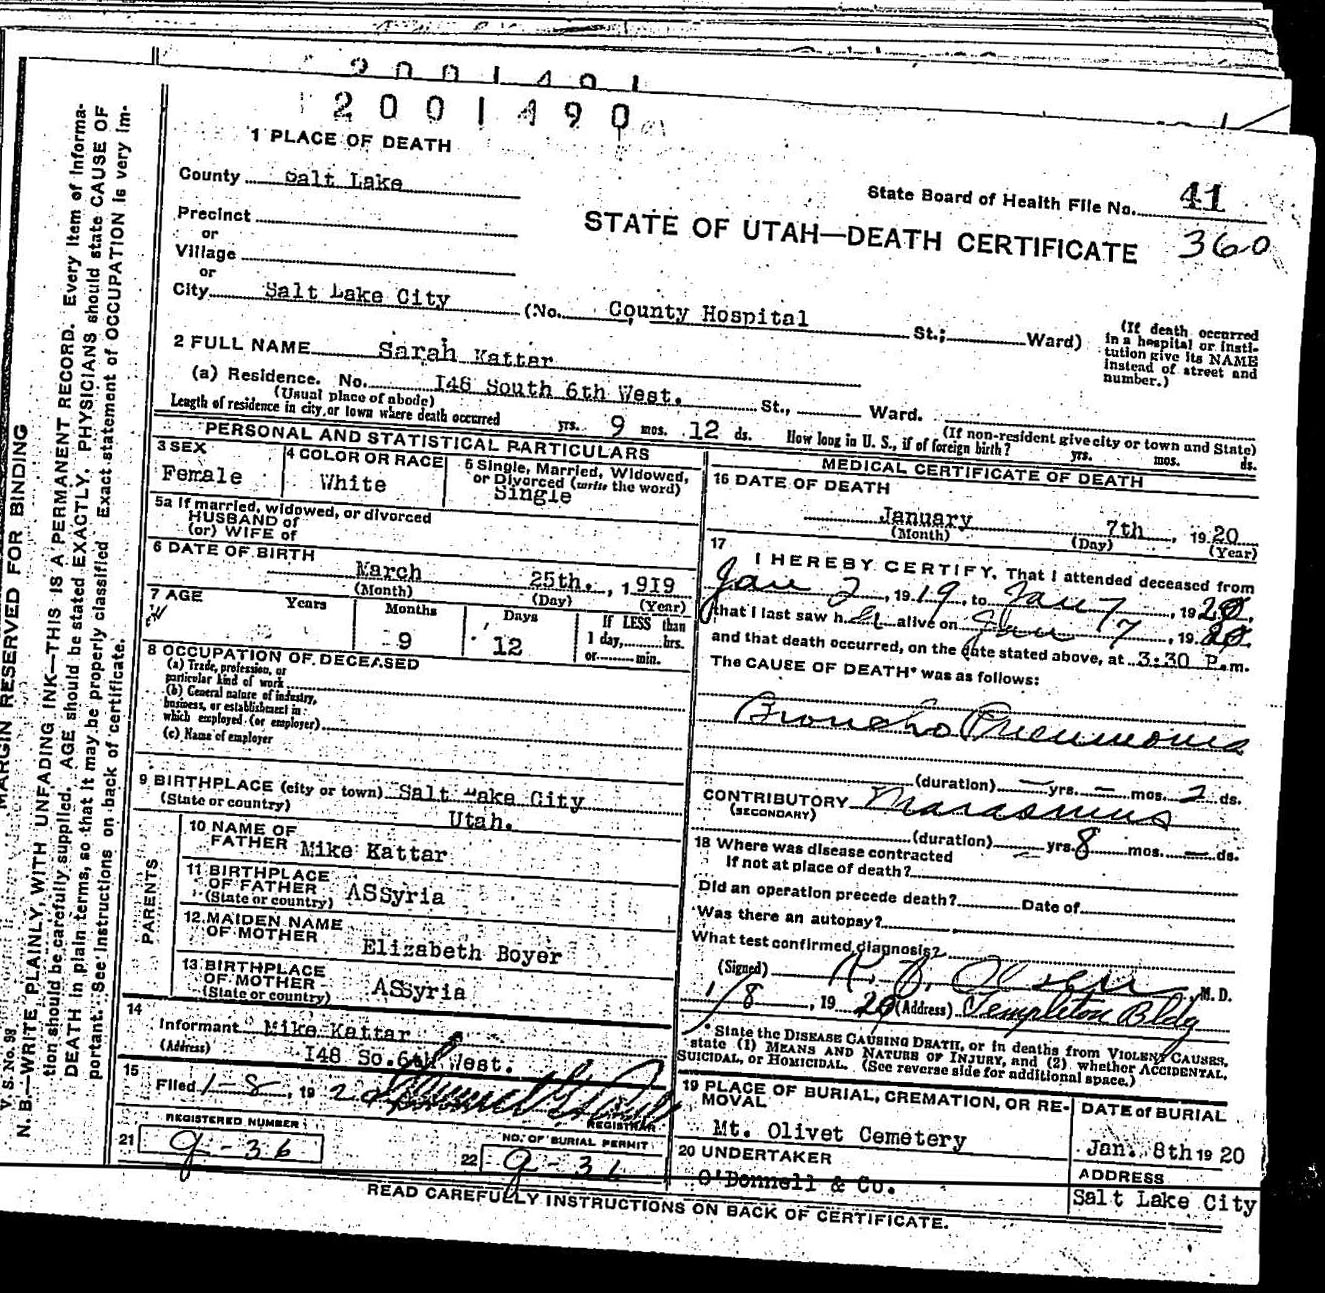 2001491
2001490
1 PLACE OF DEATH
County Salt Lake
State Board of Health File No. 41
Precinct
or
Village
or
STATE OF UTAH—DEATH CERTIFICATE 360
City Salt Lake City (No. County Hospital St.; Ward)
(If death occurred in a hospital or insti-
tution give its NAME
instead of street and
number.)
2 FULL NAME Sarah Kattar
(a) Residence. No. 148 South 6th West. St., Ward.
(Usual place of abode) (If non-resident give city or town and State)
Length of residence in city or town where death occurred yrs. 9 mos. 12 ds. How long in U. S., if of foreign birth? yrs. mos. ds.
PERSONAL AND STATISTICAL PARTICULARS
3 SEX
Female
4 COLOR OR RACE
White
5 Single, Married, Widowed,
or Divorced (write the word)
Single
5a If married, widowed, or divorced
HUSBAND of
(or) WIFE of
6 DATE OF BIRTH
March 25th., 1919
(Month) (Day) (Year)
7 AGE Years Months Days If LESS than
1 day, hrs.
9 12 or min.
8 OCCUPATION OF DECEASED
(a) Trade, profession, or
particular kind of work
(b) General nature of industry,
business, or establishment in
which employed (or employer)
(c) Name of employer
9 BIRTHPLACE (city or town) Salt Lake City
(State or country) Utah.
PARENTS
10 NAME OF
FATHER Mike Kattar
11 BIRTHPLACE
OF FATHER ASSyria
(State or country)
12 MAIDEN NAME
OF MOTHER Elizabeth Boyer
13 BIRTHPLACE
OF MOTHER ASSyria
(State or country)
14
Informant Mike Kattar
(Address) 148 So. 6th West.
15
Filed 1-8, 1920
REGISTRAR
REGISTERED NUMBER
21 9-36
NO. OF BURIAL PERMIT
22 9-36
MEDICAL CERTIFICATE OF DEATH
16 DATE OF DEATH
January 7th, 1920
(Month) (Day) (Year)
17
I HEREBY CERTIFY, That I attended deceased from
Jan 2, 1919, to Jan 7, 1920,
that I last saw her alive on Jan 7, 1920.
and that death occurred, on the date stated above, at 3:30 P.m.
The CAUSE OF DEATH* was as follows:
Broncho Pneumonia
(duration) — yrs. — mos. 2 ds.
CONTRIBUTORY Marasmus
(SECONDARY)
(duration) — yrs. 8 mos. — ds.
18 Where was disease contracted
if not at place of death?
Did an operation precede death? Date of
Was there an autopsy?
What test confirmed diagnosis?
(Signed) Olsen, M. D.
1/8, 1920 (Address) Templeton Bldg
*State the DISEASE CAUSING DEATH, or in deaths from VIOLENT CAUSES,
state (1) MEANS AND NATURE OF INJURY, and (2) whether ACCIDENTAL,
SUICIDAL, or HOMICIDAL. (See reverse side for additional space.)
19 PLACE OF BURIAL, CREMATION, OR RE-
MOVAL
Mt. Olivet Cemetery
DATE of BURIAL
Jan. 8th 1920
20 UNDERTAKER
O'Donnell & Co.
ADDRESS
Salt Lake City
READ CAREFULLY INSTRUCTIONS ON BACK OF CERTIFICATE.
V. S. No. 98
MARGIN RESERVED FOR BINDING
N. B.—WRITE PLAINLY, WITH UNFADING INK—THIS IS A PERMANENT RECORD. Every item of informa-
tion should be carefully supplied. AGE should be stated EXACTLY. PHYSICIANS should state CAUSE OF
DEATH in plain terms, so that it may be properly classified. Exact statement of OCCUPATION is very im-
portant. See instructions on back of certificate.